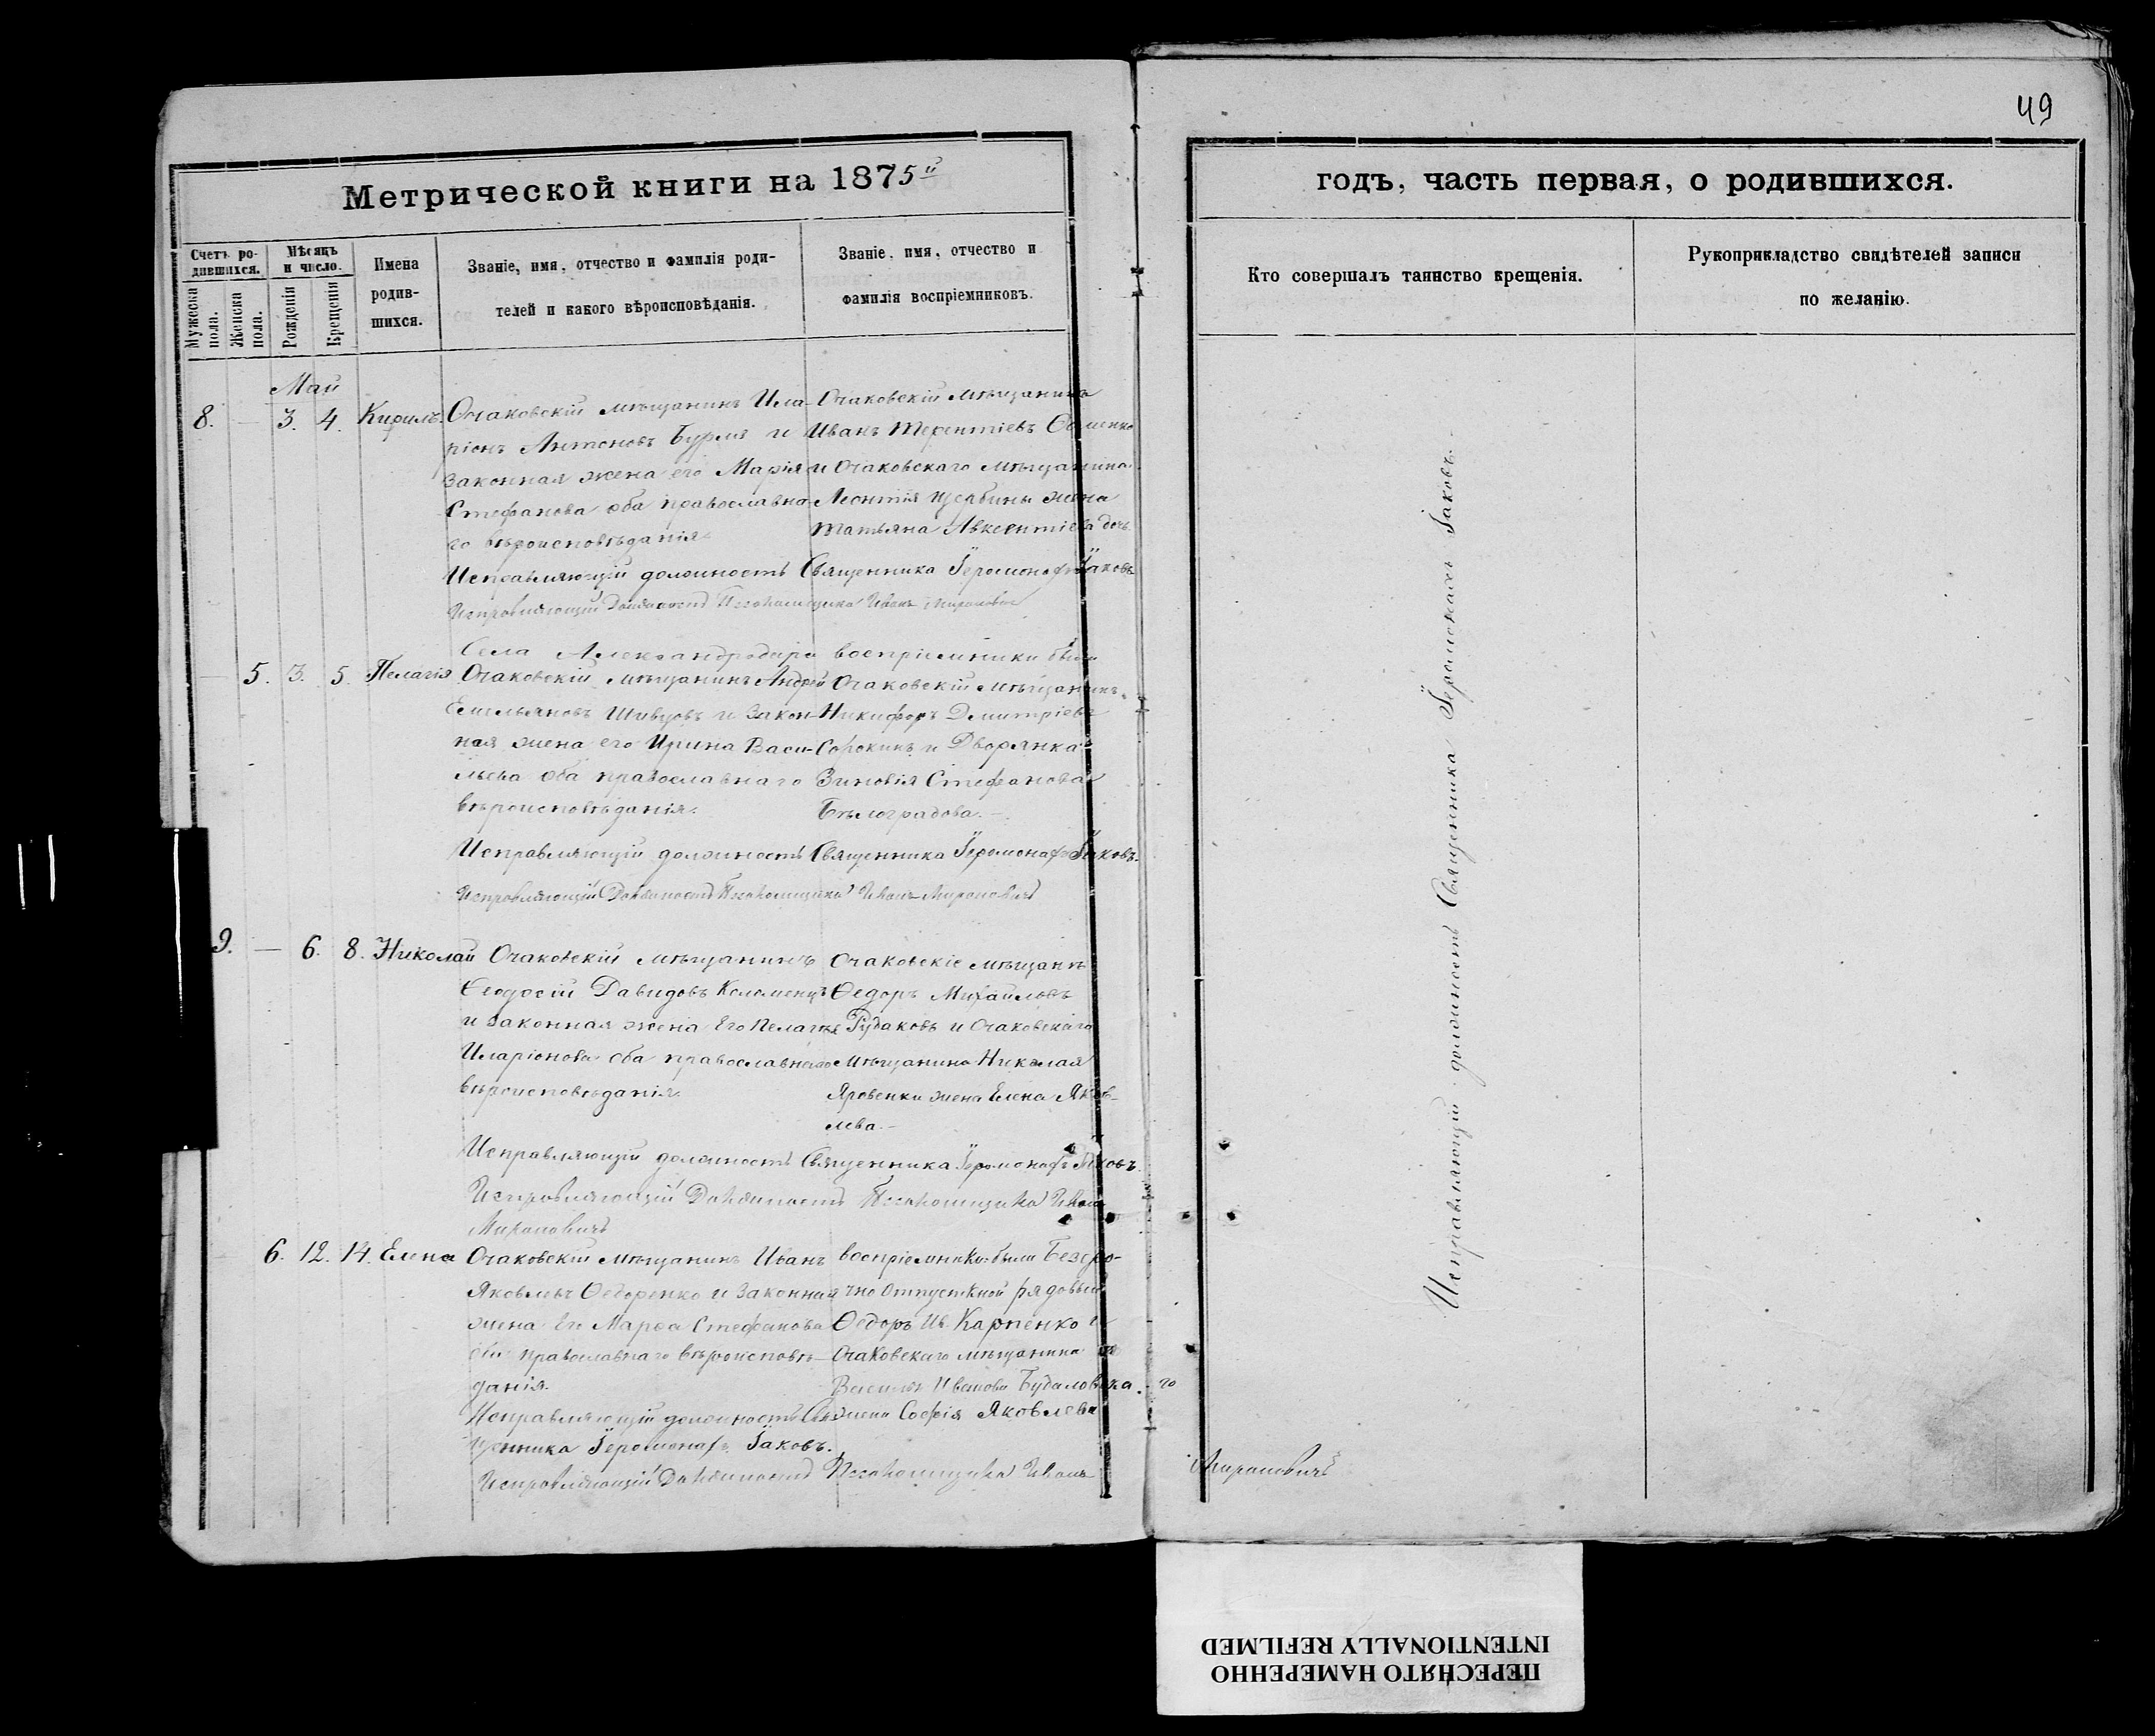 49
Метрической книги на 1875й
годъ, часть первая, о родившихся.
Счетъ ро-
дившихся.
Мужеска пола.
Женска пола.
Мѣсяцъ
и число.
Рожденія
Крещенія
Имена
родив-
шихся.
Званіе, имя, отчество и фамилія роди-
телей и какого вѣроисповѣданія.
Званіе, имя, отчество и
фамилія воспріемниковъ.
Кто совершалъ таинство крещенія.
Рукоприкладство свидѣтелей записи
по желанію.
Май
8. — 3. 4. Кирилъ.
Очаковскій мѣщанинъ Ила-
ріонъ Антоновъ Бурля и
законная жена его Марія
Стефанова оба православна-
го вѣроисповѣданія
Очаковскій мѣщанинъ
Иванъ Терентіевъ
и Очаковскаго мѣщанина
Леонтія Щербины жена
Татьяна Авксентіева дочь
Исправляющій должность Священника Іеромонахъ Іаковъ
Исправляющій Должность Псаломщика Иванъ Мироновичъ
— 5. 3. 5. Пелагія
Села Александродара
Очаковскій мѣщанинъ Андрей
Емельяновъ Шивцовъ и закон-
ная жена его Ирина Васи-
льева оба православнаго
вѣроисповѣданія.
воспріемники были
Очаковскій мѣщанинъ
Никифоръ Димитріевъ
Сорокинъ и Дворянка
Зиновія Стефанова
Бѣлоградова. —
Исправляющій должность Священника Іеромонахъ Іаковъ.
Исправляющій Должность Псаломщика Иванъ Мироновичъ
9. — 6. 8. Николай
Очаковскій мѣщанинъ
Ѳеодосій Давидовъ Коломенцъ
и законная жена Его Пелагія
Иларіонова оба православнаго
вѣроисповѣданія.
Очаковскіе мѣщанъ
Ѳедоръ Михайловъ
Рудаковъ и Очаковскаго
мѣщанина Николая
Яровенки жена Елена Яков-
лева. —
Исправляющій должность Священника Іеромонахъ Іаковъ.
Исправляющій Должность Псаломщика Иванъ
Мироновичъ
6. 12. 14. Елена
Очаковскій мѣщанинъ Иванъ
Яковлевъ Ѳедоренко и законная
жена Его Марѳа Стефанова
оба православнаго вѣроисповѣ-
данія.
воспріемники были Безсро-
чно отпускной рядовый
Ѳедоръ Ив. Карпенко и
Очаковскаго мѣщанина
Василія Иванова Будаловска-го
жена Софія Яковлева
Исправляющій должность Свя-
щенника Іеромонахъ Іаковъ.
Исправляющій Должность Псаломщика Иванъ
Мироновичъ
Исправляющій должность Священника Іеромонахъ Іаковъ.
ПЕРЕСНЯТО НАМЕРЕННО
INTENTIONALLY REFILMED